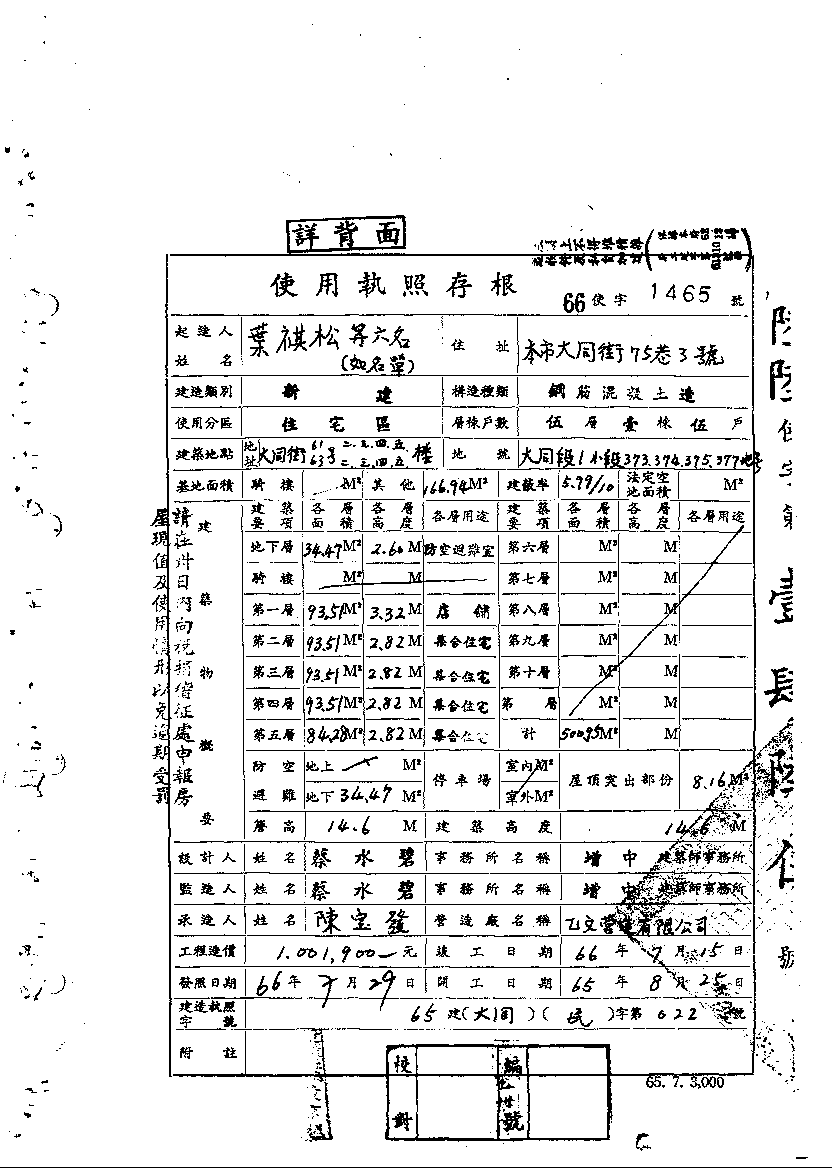 詳背面
使用執照存根
66使字 1465 號
起造人姓名 葉祺松等六名(如名單) 住址 本市大同街75巷3號
建造類別 新建 構造種類 鋼筋混凝土造
使用分區 住宅區 層棟戶數 伍層壹棟伍戶
建築地點 地址 大同街 61 63號 二.三.四.五 樓 地號 大同段1小段373.374.375.377地號
基地面積 騎樓 M² 其他 166.94M² 建蔽率 5.79/10 法定空地面積 M²
建築物概要
建築要項 各層面積 各層高度 各層用途 建築要項 各層面積 各層高度 各層用途
地下層 34.47M² 2.60M 防空避難室 第六層 M² M
騎樓 M² M 第七層 M² M
第一層 93.51M² 3.32M 店舖 第八層 M² M
第二層 93.51M² 2.82M 集合住宅 第九層 M² M
第三層 93.51M² 2.82M 集合住宅 第十層 M² M
第四層 93.51M² 2.82M 集合住宅 第 層 M² M
第五層 84.28M² 2.82M 集合住宅 計 500.95M² M
防空避難 地上 M² 停車場 室內M² 屋頂突出部份 8.16M²
地下 34.47 M² 室外M²
簷高 14.6 M 建築高度 14.6 M
設計人 姓名 蔡水碧 事務所名稱 增中 建築師事務所
監造人 姓名 蔡水碧 事務所名稱 增中 建築師事務所
承造人 姓名 陳宝發 營造廠名稱 營建有限公司
工程造價 1,001,900 元 竣工日期 66年7月15日
發照日期 66年7月29日 開工日期 65年8月25日
建造執照字號 65建(大同)(民)字第022號
附註
請在卅日內向稅捐稽征處申報房
屋現值及使用情形以免逾期受罰
校對 編號
65. 7. 3,000